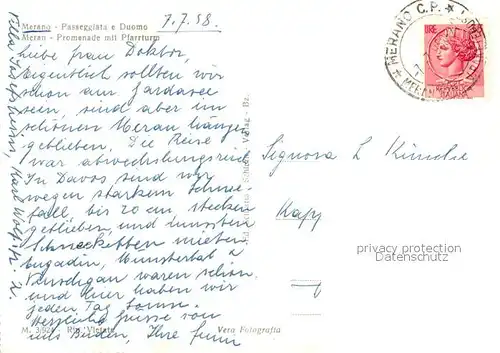 Merano - Passeggiata e Duomo
Meran - Promenade mit Pfarrturm
7.7.58.
MERANO C.P.
LIRE
Liebe Frau Doktor,
Eigentlich sollten wir
schon am Gardasee
sein, sind aber im
schönen Meran hängen
geblieben. Die Reise
war abwechslungsreich
In Davos sind wir
wegen starkem Schnee-
fall, bis 20 cm stecken
geblieben, und mussten
Schneeketten mieten
Engadin, Münstertal u
Vinschgau waren schön
und hier haben wir
jeden Tag Sonne.
Herzliche Grüsse von
uns Beiden, Ihre
Signora L
privacy protection
Datenschutz
M. 3/924 - Rip. Vietata
Vera Fotografia